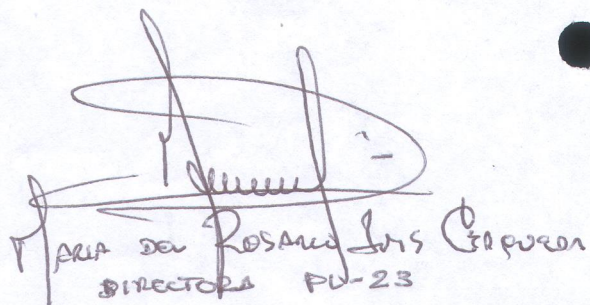 MARIA DEL ROSARIO LUIS CERQUEDA
DIRECTORA PU-23